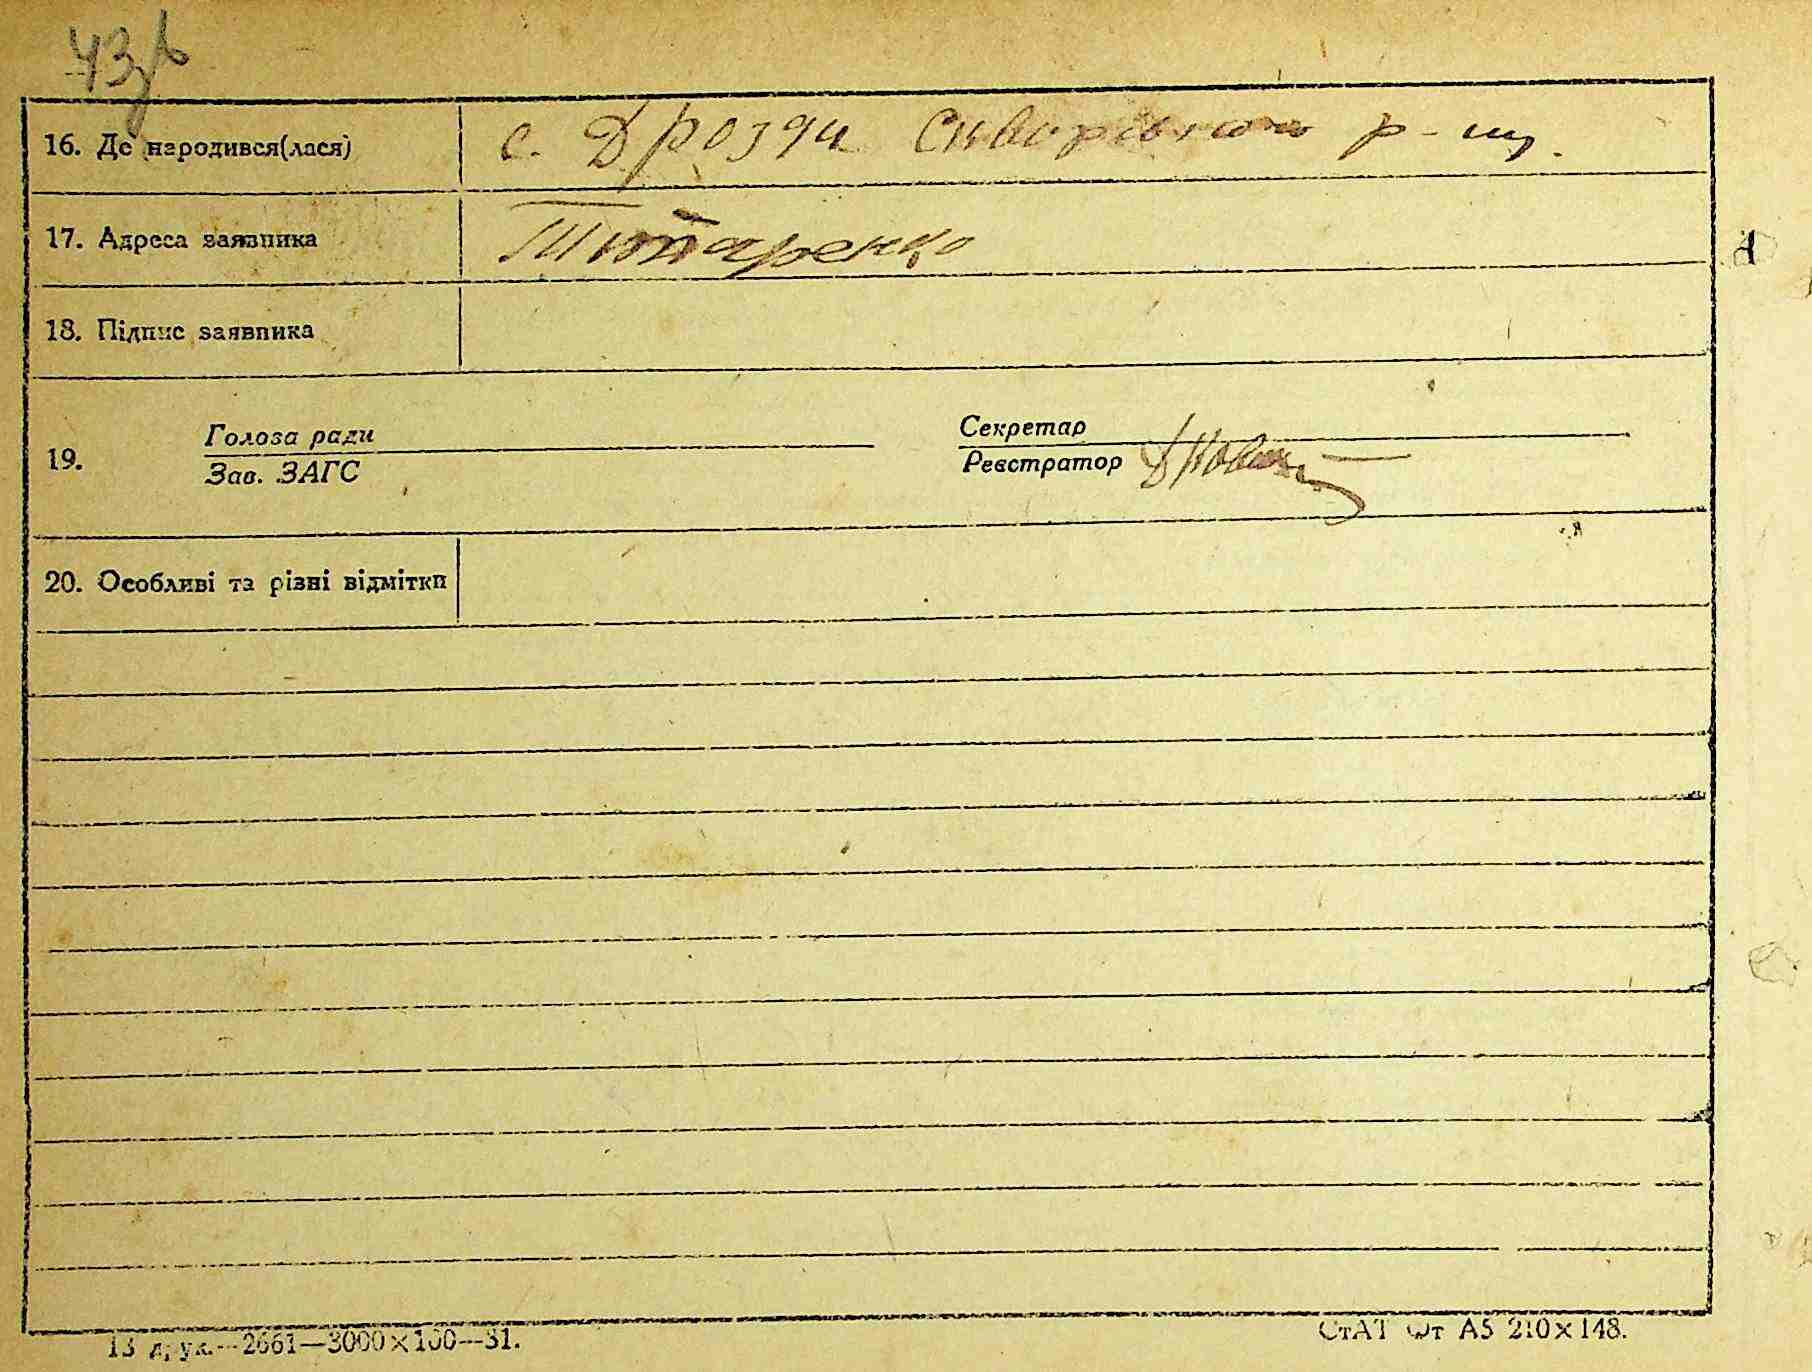 43
16. Де народився(лася) с. Дрозди р-ну.
17. Адреса заявника Титаренко
18. Підпис заявника
19. Голова ради Секретар
Зав. ЗАГС Реєстратор
20. Особливі та різні відмітки
13 друк.—2661—3000×100—31. СтАТ А5 210×148.